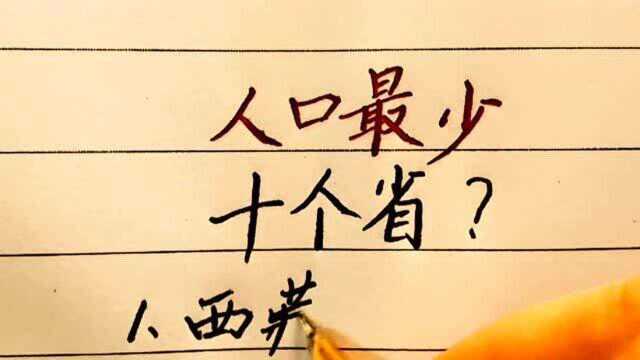 人口最少
十个省？
1、西